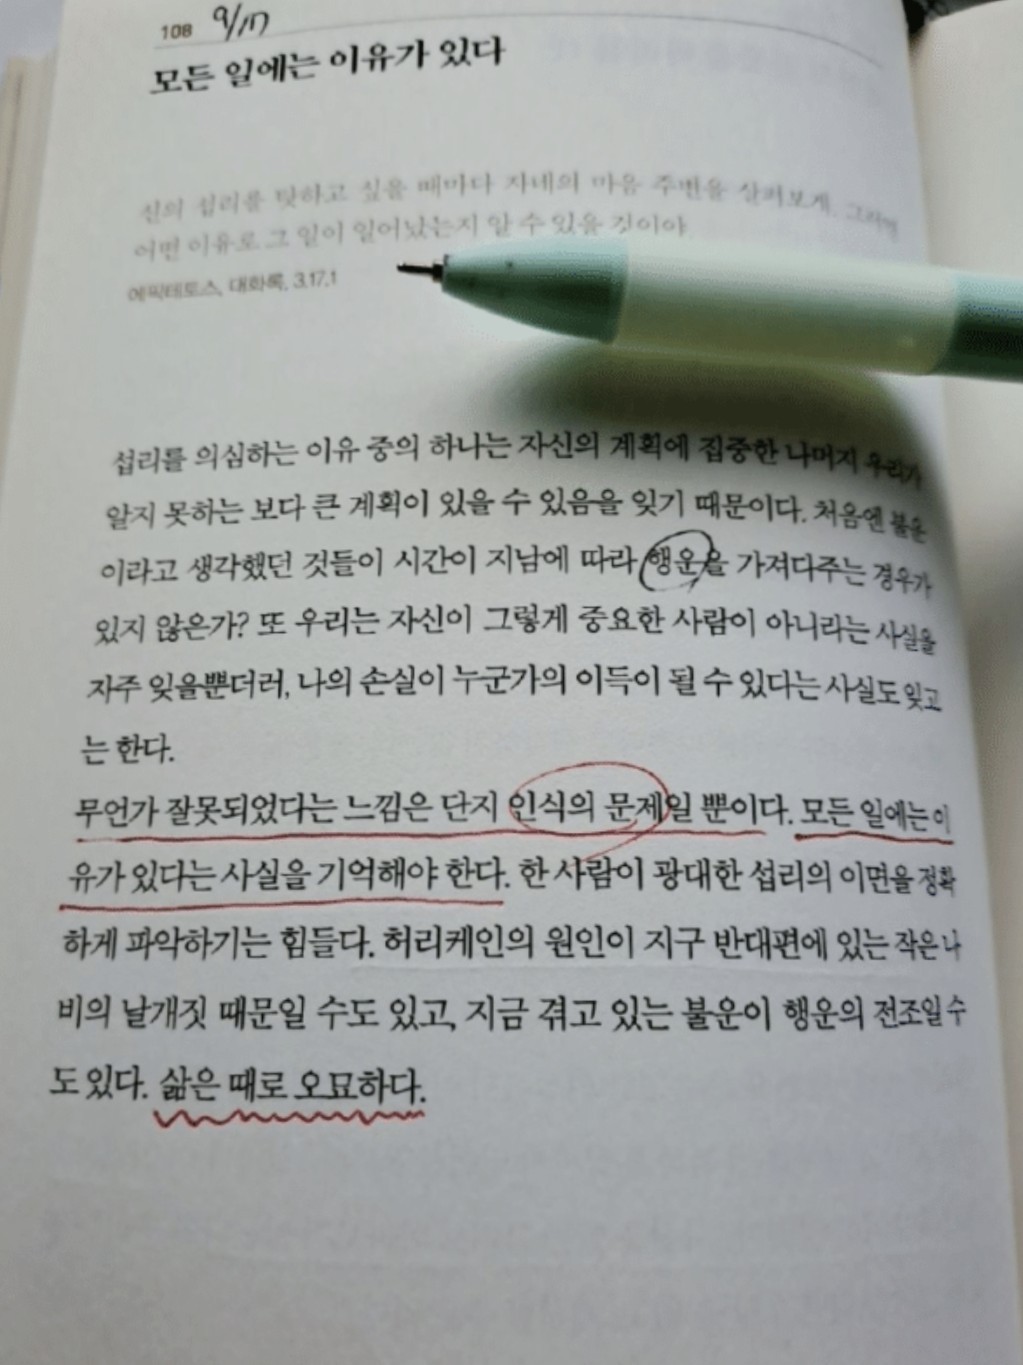 108 9/17
모든 일에는 이유가 있다
신의 섭리를 탓하고 싶을 때마다 자네의 마음 주변을 살펴보게. 그러면
어떤 이유로 그 일이 일어났는지 알 수 있을 것이야.
에픽테토스, 대화록, 3.17.1
섭리를 의심하는 이유 중의 하나는 자신의 계획에 집중한 나머지 우리가
알지 못하는 보다 큰 계획이 있을 수 있음을 잊기 때문이다. 처음엔 불운
이라고 생각했던 것들이 시간이 지남에 따라 행운을 가져다주는 경우가
있지 않은가? 또 우리는 자신이 그렇게 중요한 사람이 아니라는 사실을
자주 잊을뿐더러, 나의 손실이 누군가의 이득이 될 수 있다는 사실도 잊고
는 한다.
무언가 잘못되었다는 느낌은 단지 인식의 문제일 뿐이다. 모든 일에는 이
유가 있다는 사실을 기억해야 한다. 한 사람이 광대한 섭리의 이면을 정확
하게 파악하기는 힘들다. 허리케인의 원인이 지구 반대편에 있는 작은 나
비의 날개짓 때문일 수도 있고, 지금 겪고 있는 불운이 행운의 전조일 수
도 있다. 삶은 때로 오묘하다.